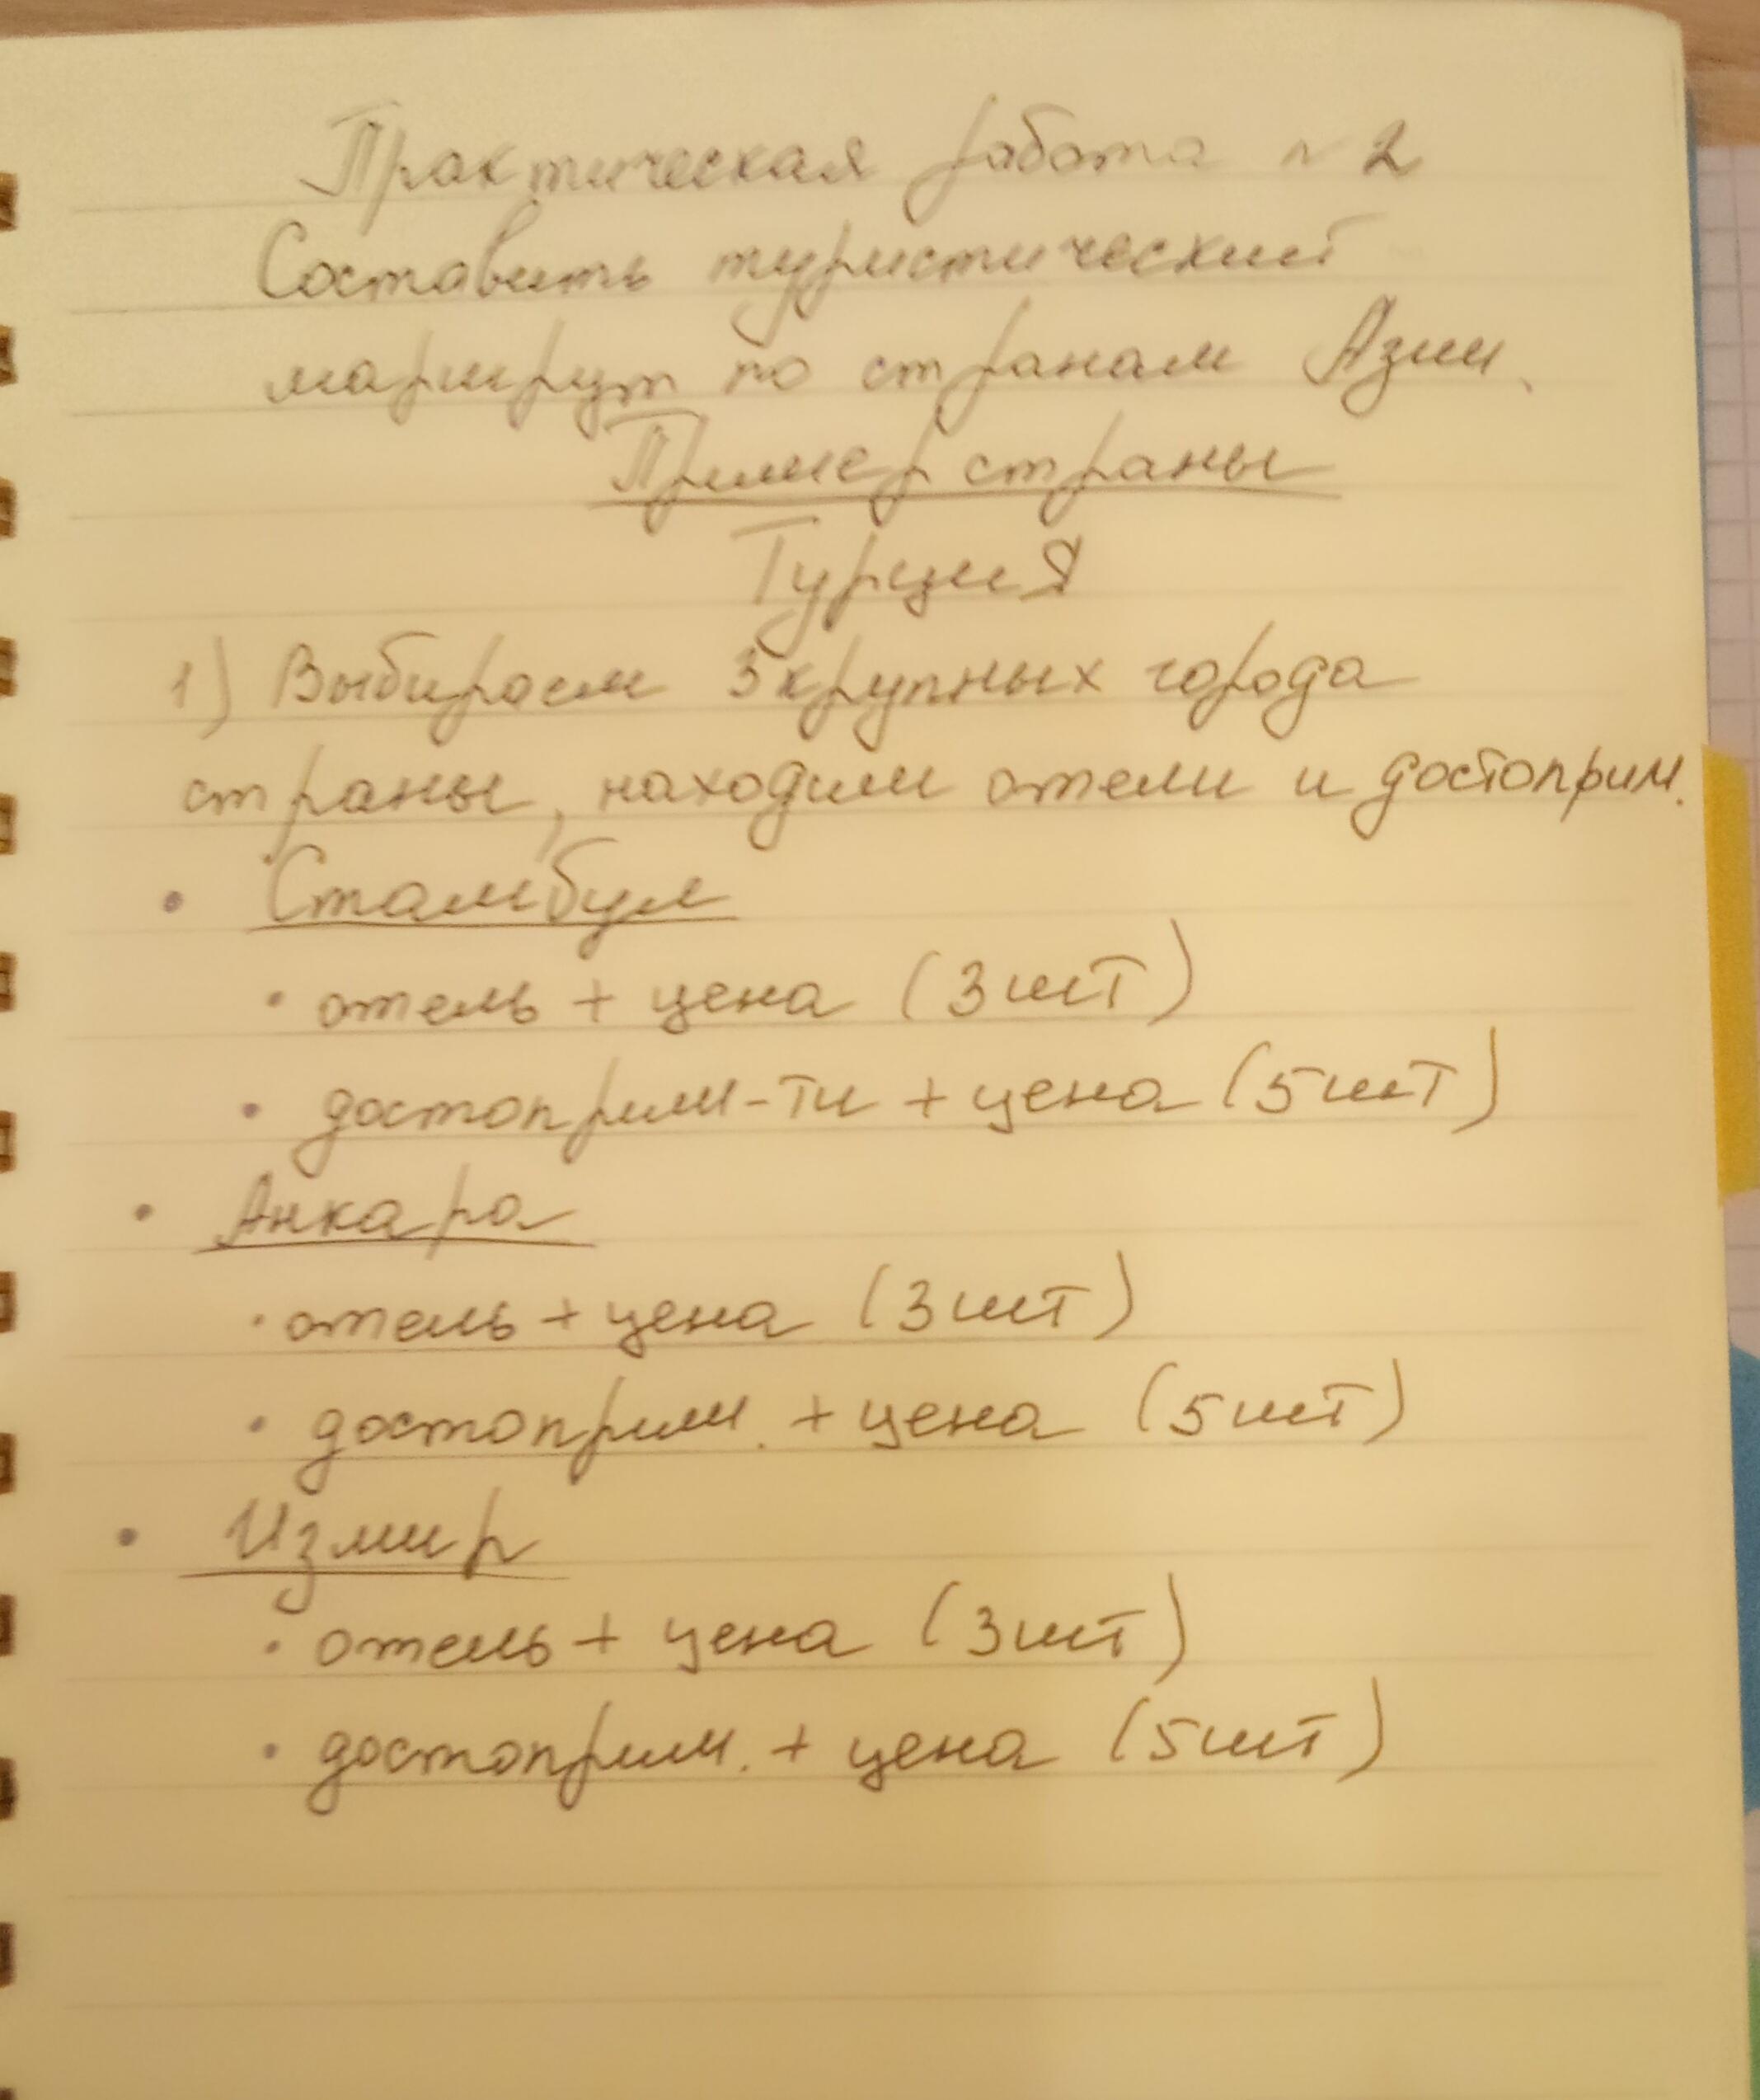 Практическая работа n 2
Составить туристический
маршрут по странам Азии.
Пример страны
Турция
1) Выбираем 3 крупных города
страны, находим отели и достоприм.
• Стамбул
• отель + цена (3 шт)
• достоприм-ти + цена (5 шт)
• Анкара
• отель + цена (3 шт)
• достоприм. + цена (5 шт)
• Измир
• отель + цена (3 шт)
• достоприм. + цена (5 шт)